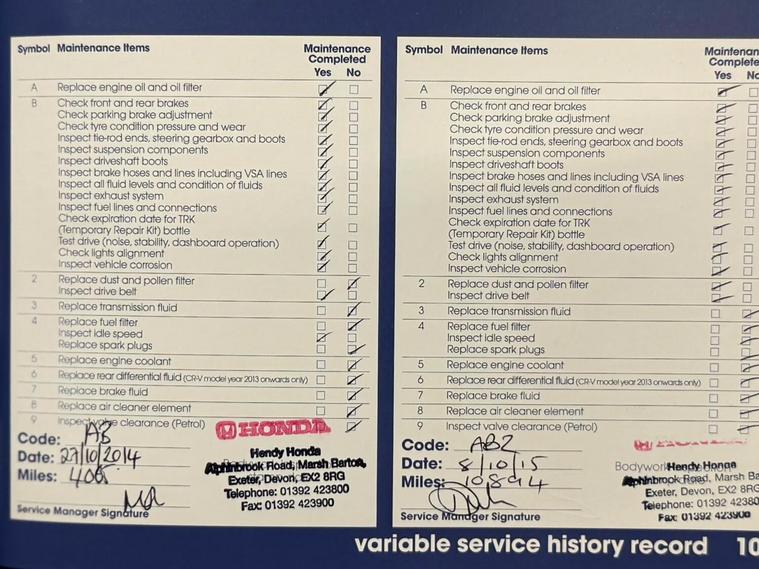 Symbol Maintenance Items Maintenance Completed
Yes No
A Replace engine oil and oil filter
B Check front and rear brakes
Check parking brake adjustment
Check tyre condition pressure and wear
Inspect tie-rod ends, steering gearbox and boots
Inspect suspension components
Inspect driveshaft boots
Inspect brake hoses and lines including VSA lines
Inspect all fluid levels and condition of fluids
Inspect exhaust system
Inspect fuel lines and connections
Check expiration date for TRK
(Temporary Repair Kit) bottle
Test drive (noise, stability, dashboard operation)
Check lights alignment
Inspect vehicle corrosion
2 Replace dust and pollen filter
Inspect drive belt
3 Replace transmission fluid
4 Replace fuel filter
Inspect idle speed
Replace spark plugs
5 Replace engine coolant
6 Replace rear differential fluid (CR-V model year 2013 onwards only)
7 Replace brake fluid
8 Replace air cleaner element
9 Inspect valve clearance (Petrol)
Code: AB
Date: 27/10/2014
Miles:
Service Manager Signature
HONDA
Hendy Honda
Alphinbrook Road, Marsh Barton,
Exeter, Devon, EX2 8RG
Telephone: 01392 423800
Fax: 01392 423900
Symbol Maintenance Items Maintenan
Complete
Yes No
A Replace engine oil and oil filter
B Check front and rear brakes
Check parking brake adjustment
Check tyre condition pressure and wear
Inspect tie-rod ends, steering gearbox and boots
Inspect suspension components
Inspect driveshaft boots
Inspect brake hoses and lines including VSA lines
Inspect all fluid levels and condition of fluids
Inspect exhaust system
Inspect fuel lines and connections
Check expiration date for TRK
(Temporary Repair Kit) bottle
Test drive (noise, stability, dashboard operation)
Check lights alignment
Inspect vehicle corrosion
2 Replace dust and pollen filter
Inspect drive belt
3 Replace transmission fluid
4 Replace fuel filter
Inspect idle speed
Replace spark plugs
5 Replace engine coolant
6 Replace rear differential fluid (CR-V model year 2013 onwards only)
7 Replace brake fluid
8 Replace air cleaner element
9 Inspect valve clearance (Petrol)
Code: AB2
Date: 8/10/15
Miles: 10894
Service Manager Signature
Hendy Honda
Alphinbrook Road, Marsh Ba
Exeter, Devon, EX2 8RG
Telephone: 01392 42380
Fax: 01392 423900
variable service history record 10